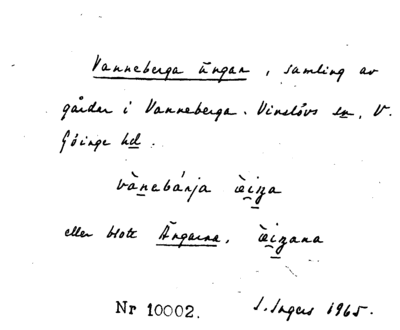 Vanneberga ängar, samling av
gårdar i Vanneberga. Vinslövs sn, V.
Göinge hd.
vànebárja
eller blott Ängarna,
Nr 10002. I. Ingers 1965.